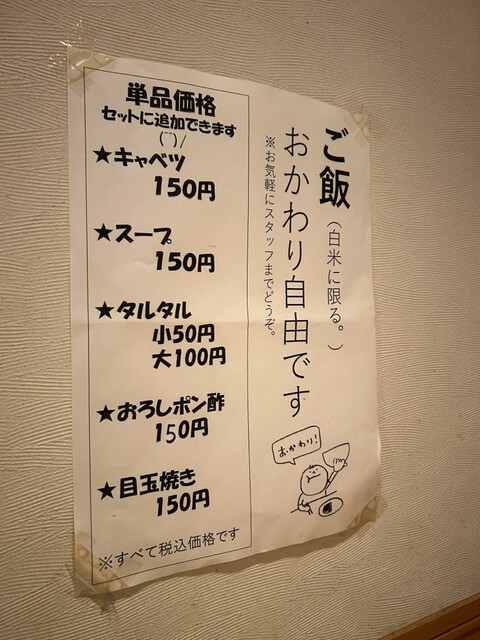 ご飯(白米に限る。)
おかわり自由です
※お気軽にスタッフまでどうぞ。
おかわり!
単品価格
セットに追加できます
★キャベツ
150円
★スープ
150円
★タルタル
小50円
大100円
★おろしポン酢
150円
★目玉焼き
150円
※すべて税込価格です